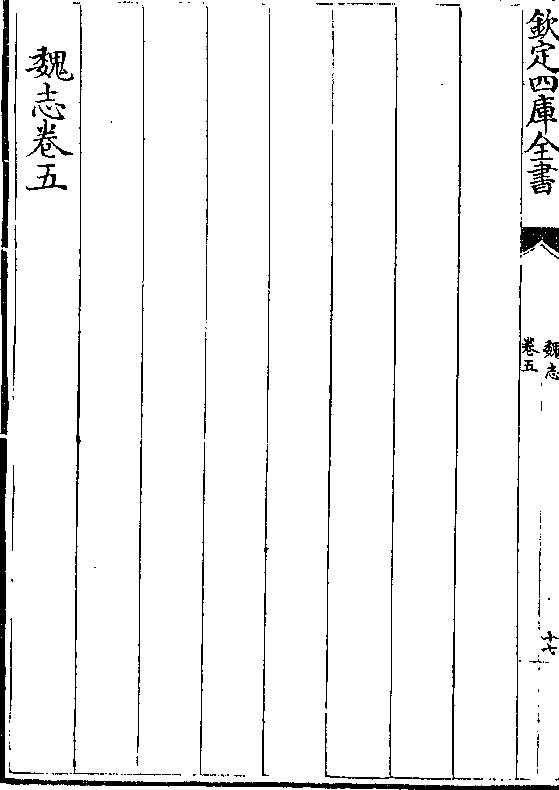 欽定四庫全書
魏志
卷五
十七
魏志卷五